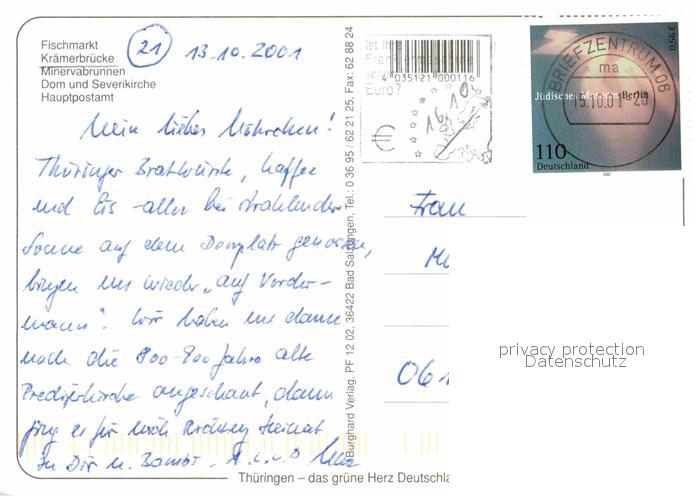 Fischmarkt
Krämerbrücke
Minervabrunnen
Dom und Severikirche
Hauptpostamt
21 13.10.2001
Mein liebes
Thüringer Bratwürste, Kaffee
und Eis - alles bei strahlender
Sonne auf dem Domplatz genossen,
bringen uns wieder „auf Vorder-
mann". Wir haben uns dann
noch die 800-900 Jahre alte
Predigerkirche angeschaut, dann
ging es für mich Richtung Heimat
zu Dir u. Bambi.
Thüringen – das grüne Herz Deutschla
Burghard Verlag, PF 12 02, 36422 Bad Salzungen, Tel.: 0 36 95 / 62 21 25, Fax: 62 88 24
Ist Ihre
Euro?
4 035121 000116
16.10.
€
BRIEFZENTRUM 06
ma
15.10.01-20
0,56 €
Jüdisches Museum Berlin
110
Deutschland
Frau
061
privacy protection
Datenschutz